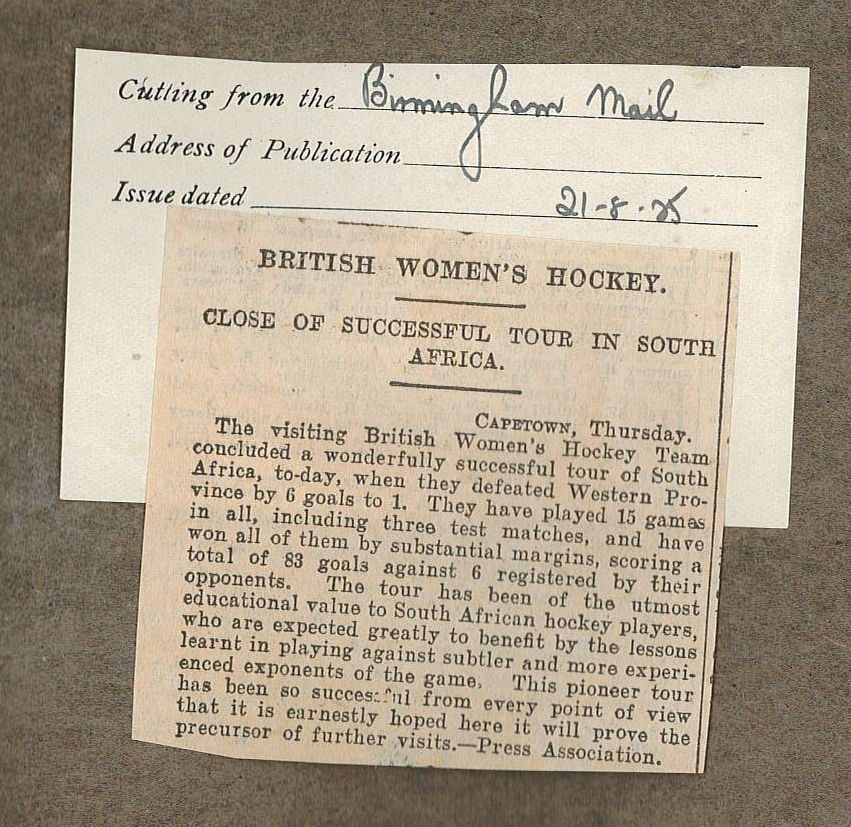 Cutting from the Birmingham Mail
Address of Publication
Issue dated 21-8-25
BRITISH WOMEN'S HOCKEY.
CLOSE OF SUCCESSFUL TOUR IN SOUTH
AFRICA.
CAPETOWN, Thursday.
The visiting British Women's Hockey Team
concluded a wonderfully successful tour of South
Africa, to-day, when they defeated Western Pro-
vince by 6 goals to 1. They have played 15 games
in all, including three test matches, and have
won all of them by substantial margins, scoring a
total of 83 goals against 6 registered by their
opponents. The tour has been of the utmost
educational value to South African hockey players,
who are expected greatly to benefit by the lessons
learnt in playing against subtler and more experi-
enced exponents of the game. This pioneer tour
has been so successful from every point of view
that it is earnestly hoped here it will prove the
precursor of further visits.—Press Association.